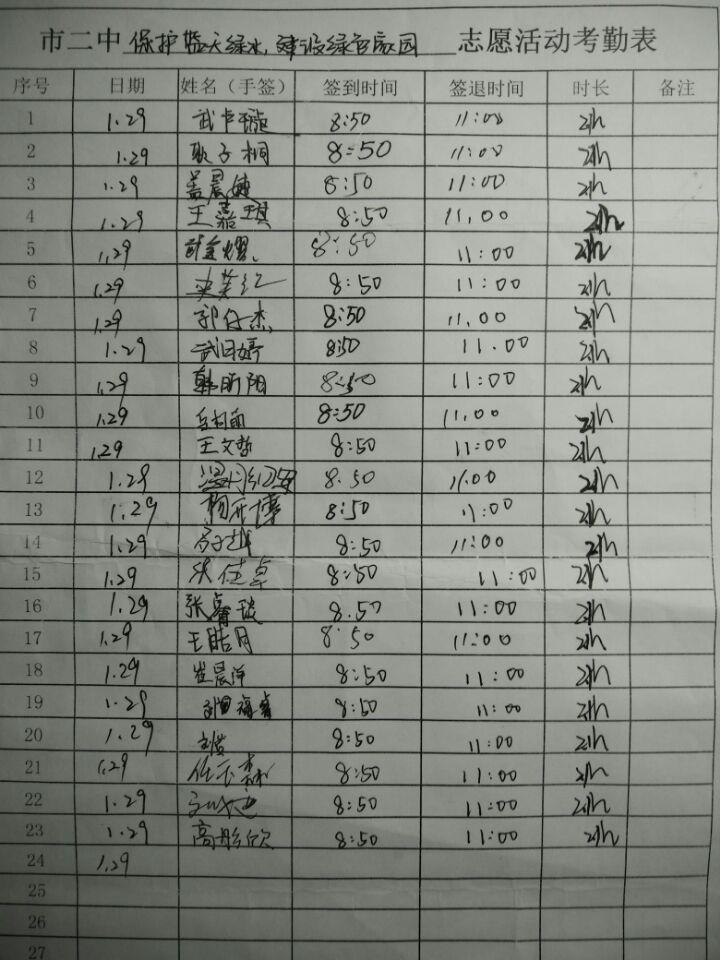 市二中 保护蓝天绿水,建设绿色家园 志愿活动考勤表
序号 日期 姓名（手签） 签到时间 签退时间 时长 备注
1 1.29 8:50 11:00 2h
2 1.29 耿子桐 8:50 11:00 2h
3 1.29 8:50 11:00 2h
4 1.29 王嘉琪 8:50 11.00 2h
5 1.29 8:50 11:00 2h
6 1.29 8:50 11:00 2h
7 1.29 郭仔杰 8:50 11.00 2h
8 1.29 武日婷 8:50 11.00 2h
9 1.29 韩昕阳 8:50 11:00 2h
10 1.29 8:50 11.00 2h
11 1.29 王文哲 8:50 11:00 2h
12 1.29 8.50 11.00 2h
13 1.29 杨开博 8:50 11:00 2h
14 1.29 8:50 11:00 2h
15 1.29 8:50 11:00 2h
16 1.29 张睿琰 8.50 11:00 2h
17 1.29 王皓月 8:50 11:00 2h
18 1.29 崔晨萍 8:50 11:00 2h
19 1.29 8:50 11:00 2h
20 1.29 8:50 11:00 2h
21 1.29 任玉森 8:50 11:00 2h
22 1.29 8:50 11:00 2h
23 1.29 高彤欣 8:50 11:00 2h
24 1.29
25
26
27